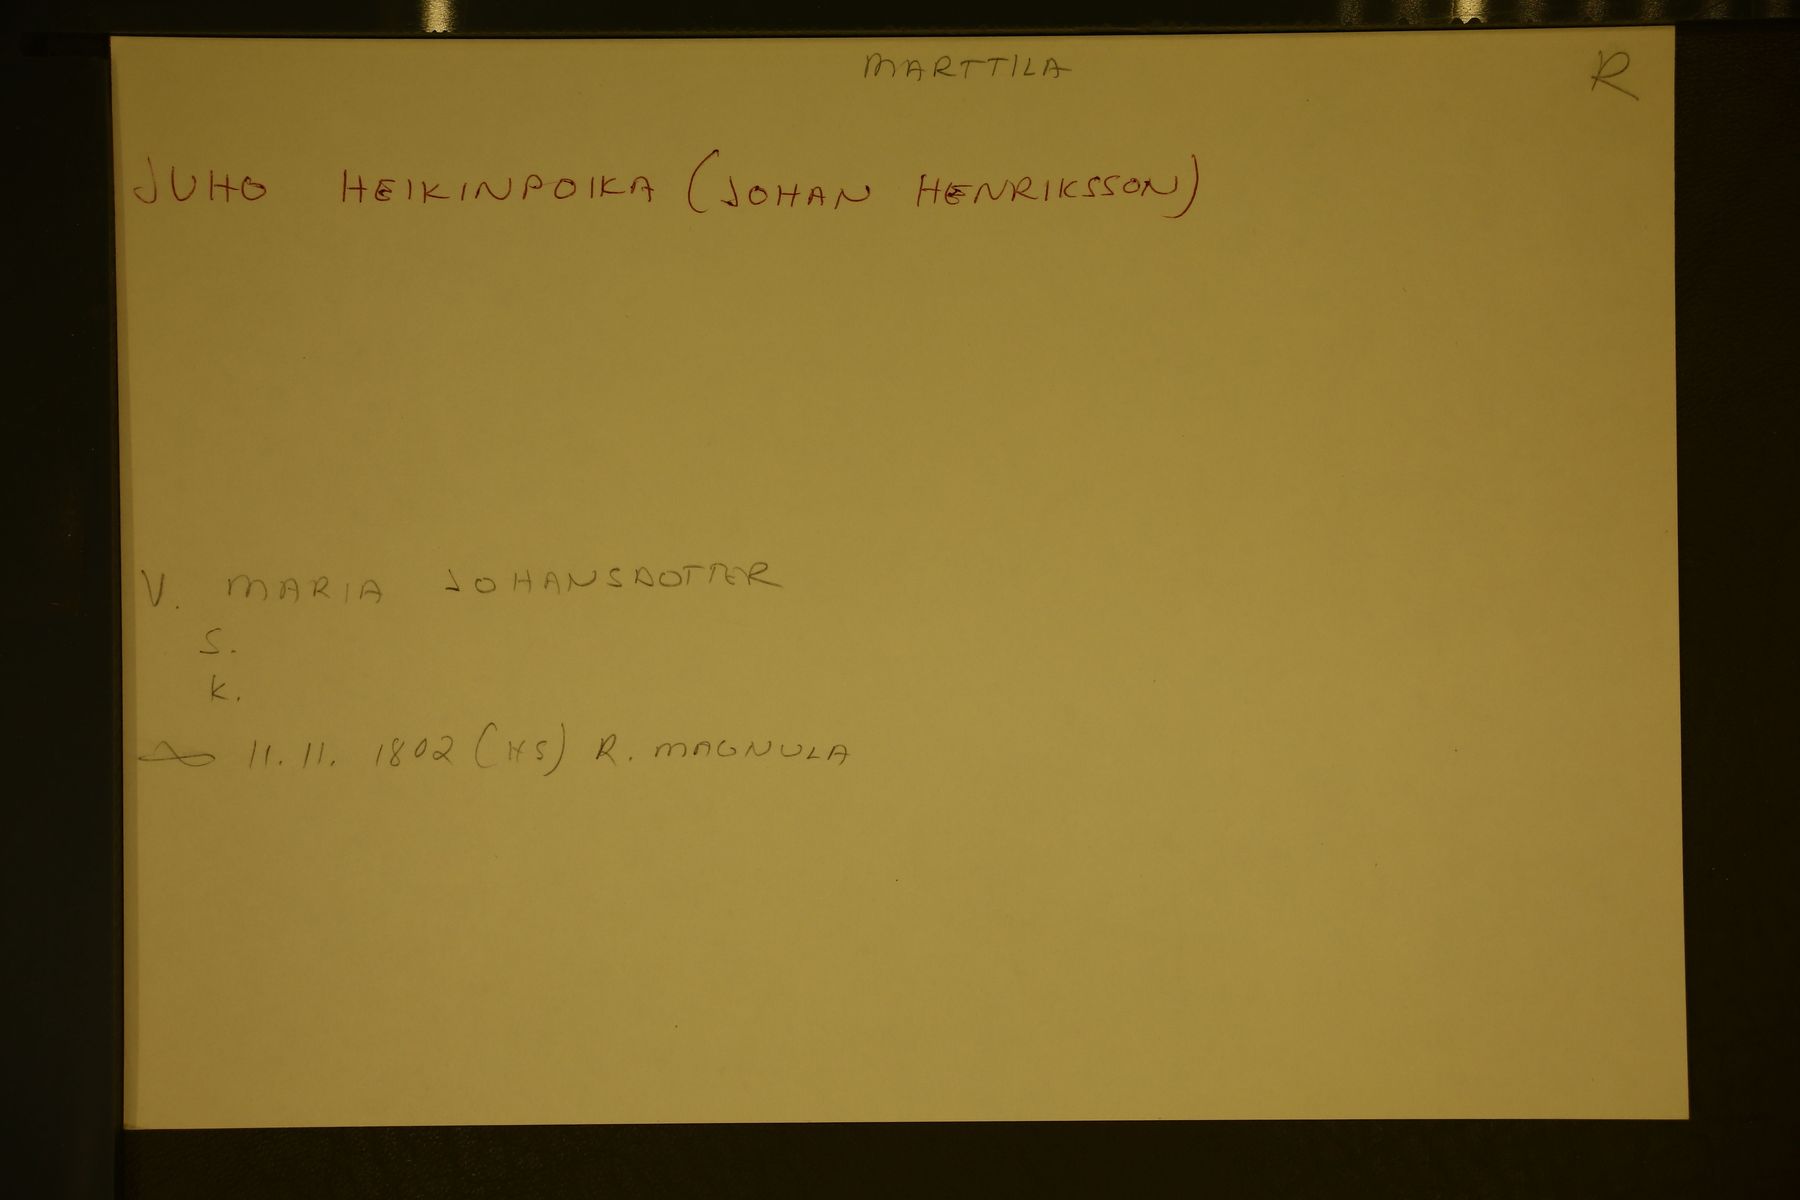 MARTTILA
R
JUHO HEIKINPOIKA (JOHAN HENRIKSSON)
V. MARIA JOHANSDOTTER
S.
K.
11.11. 1802 (HS) R. MAGNULA